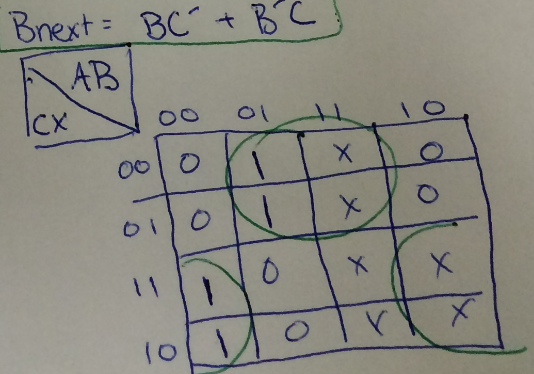 Bnext = BC' + B'C
AB
CX
00 01 11 10
00 0 1 X 0
01 0 1 X 0
11 1 0 X X
10 1 0 X X